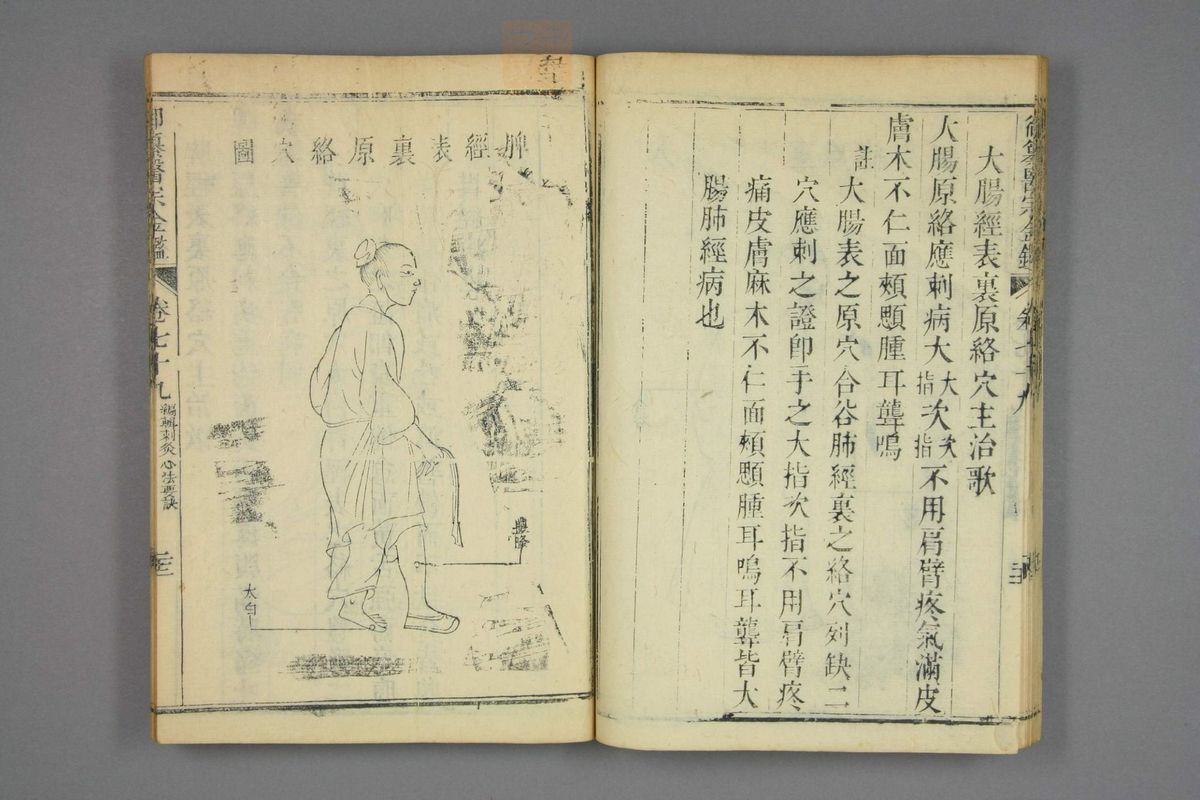 大腸經表裏原絡穴主治歌
大腸原絡應刺病大大指次次指不用肩臂疼氣滿皮
膚木不仁面頰顋腫耳聾鳴
註大腸表之原穴合谷肺經裏之絡穴列缺二
穴應刺之證卽手之大指次指不用肩臂疼
痛皮膚麻木不仁面頰顋腫耳鳴耳聾皆大
腸肺經病也
脾經表裏原絡穴圖
豐隆
太白
御纂醫宗金鑑
卷七十九
編輯刺灸心法要訣